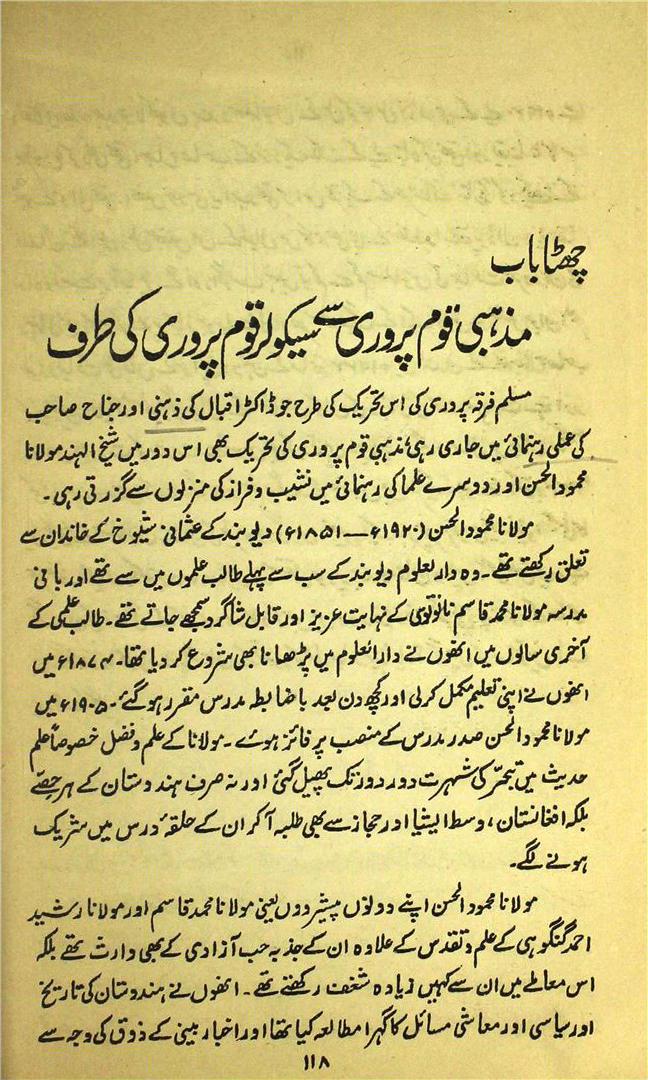 چھٹا باب
مذہبی قوم پروری سے سیکولر قوم پروری کی طرف
مسلم فرقہ پروری کی اس تحریک کی طرح جو ڈاکٹر اقبال کی ذہنی اور جناح صاحب
کی عملی رہنمائی میں جاری رہی، مذہبی قوم پروری کی تحریک بھی اس دور میں شیخ الہند مولانا
محمود الحسن اور دوسرے علما کی رہنمائی میں نشیب و فراز کی منزلوں سے گزرتی رہی۔
مولانا محمود الحسن (۱۹۲۰ء — ۱۸۵۱ء) دیوبند کے عثمانی شیوخ کے خاندان سے
تعلق رکھتے تھے۔ وہ دارالعلوم دیوبند کے سب سے پہلے طالب علموں میں سے تھے اور بانی
مدرسہ مولانا محمد قاسم نانوتوی کے نہایت عزیز اور قابل شاگرد سمجھے جاتے تھے۔ طالب علمی کے
آخری سالوں میں انھوں نے دارالعلوم میں پڑھانا بھی شروع کر دیا تھا۔ ۱۸۷۴ء میں
انھوں نے اپنی تعلیم مکمل کرلی اور کچھ دن بعد باضابطہ مدرس مقرر ہو گئے۔ ۱۹۰۵ء میں
مولانا محمود الحسن صدر مدرس کے منصب پر فائز ہوئے۔ مولانا کے علم و فضل خصوصاً علم
حدیث میں تبحّر کی شہرت دور دور تک پھیل گئی اور نہ صرف ہندوستان کے ہر حصّے
بلکہ افغانستان، وسط ایشیا اور حجاز سے بھی طلبہ آکر ان کے حلقۂ درس میں شریک
ہونے لگے۔
مولانا محمود الحسن اپنے دونوں پیشرووں یعنی مولانا محمد قاسم اور مولانا رشید
احمد گنگوہی کے علم و تقدس کے علاوہ ان کے جذبہ حب آزادی کے بھی وارث تھے بلکہ
اس معاملے میں ان سے کہیں زیادہ شغف رکھتے تھے۔ انھوں نے ہندوستان کی تاریخ
اور سیاسی اور معاشی مسائل کا گہرا مطالعہ کیا تھا اور اخبار بینی کے ذوق کی وجہ سے
۱۱۸